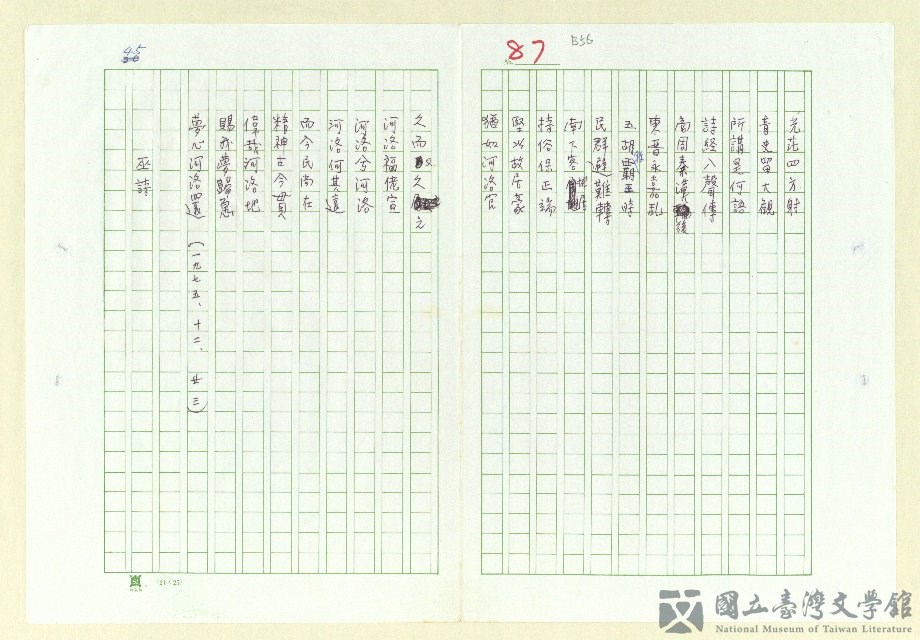 87
B56
光茫四方射
青史留大観
所講是何語
詩經入聲傳
商周秦漢後
東晉永嘉亂
五胡爭覇時
民群避難轉
南下客
持俗保正端
堅水故居豪
猶如河洛官
45
久而又久之
河洛福佬宣
河洛兮河洛
河洛何其遠
而今民尚在
精神古今貫
偉哉河洛地
賜我夢腦意
夢心河洛田還 (一九七五、十二、廿三)
巫詩
(21×25)
國立臺灣文學館
National Museum of Taiwan Literature